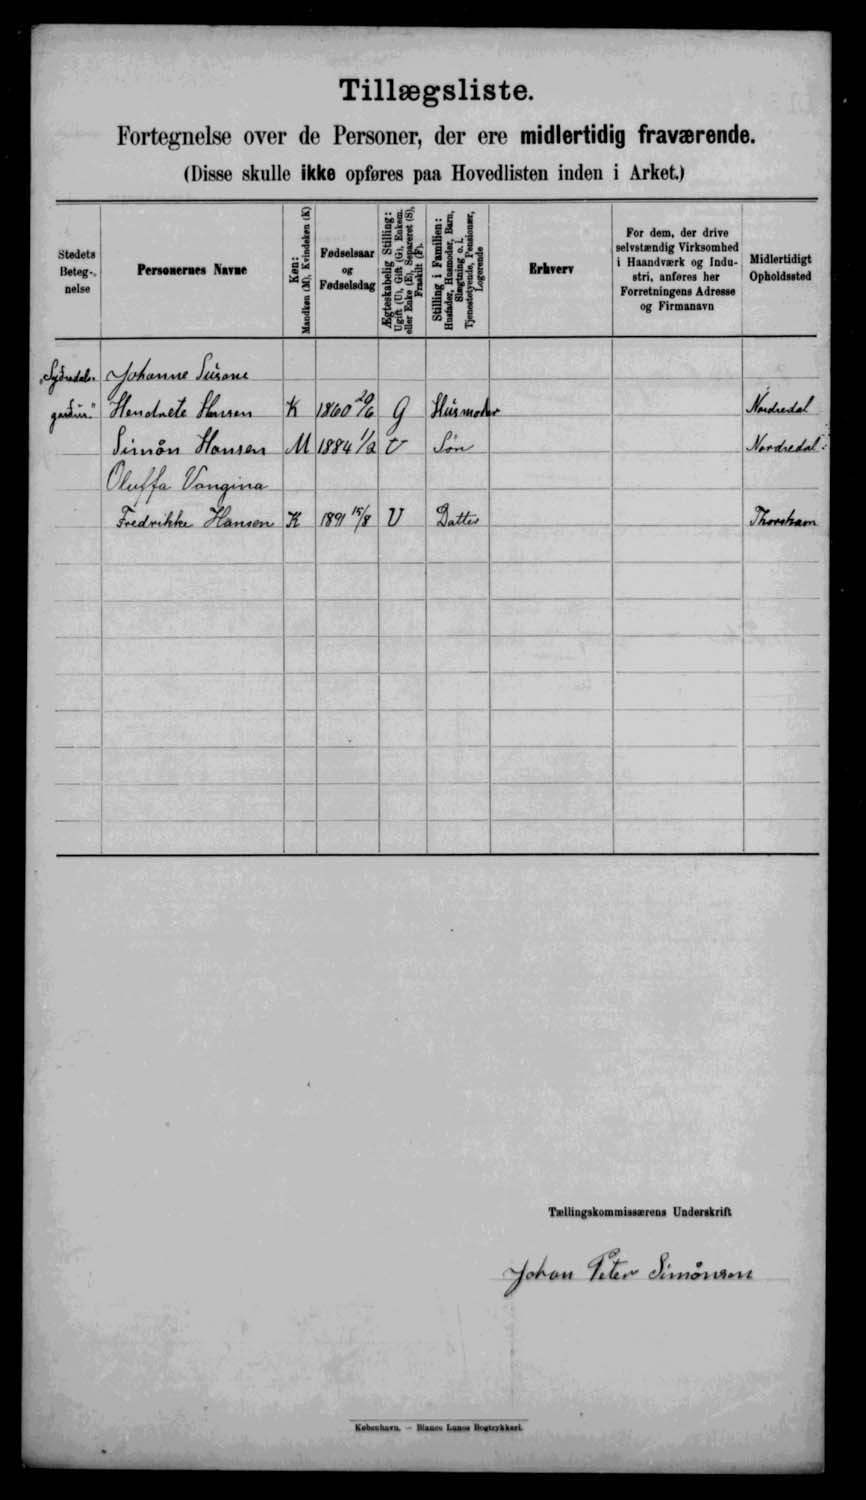 Tillægsliste.
Fortegnelse over de Personer, der ere midlertidig fraværende.
(Disse skulle ikke opføres paa Hovedlisten inden i Arket.)
Stedets Beteg-. nelse
Personernes Navne
Køn: Mandkøn (M), Kvindekøn (K)
Fødselsaar og Fødselsdag
Ægteskabelig Stilling: Ugift (U), Gift (G), Enkem. eller Enke (E), Separeret (S), Fraskilt (F).
Stilling i Familien: Husfader, Husmoder, Barn, Slægtning o. l. Tjenestetyende, Pensionær, Logerende
Erhverv
For dem, der drive selvstændig Virksomhed i Haandværk og Industri, anføres her Forretningens Adresse og Firmanavn
Midlertidigt Opholdssted
Johanne Susane
Hendrete Hansen K 1860 29/6 G Húsmoder Nordredal
Simón Hansen M 1884 1/2 U Søn Nordredal
Oluffa Vangina
Fredrikke Hansen K 1891 15/8 U Datter Thorshavn
Tællingskommissærens Underskrift
Johan Peter Simónsen
København. — Bianco Lunos Bogtrykkeri.